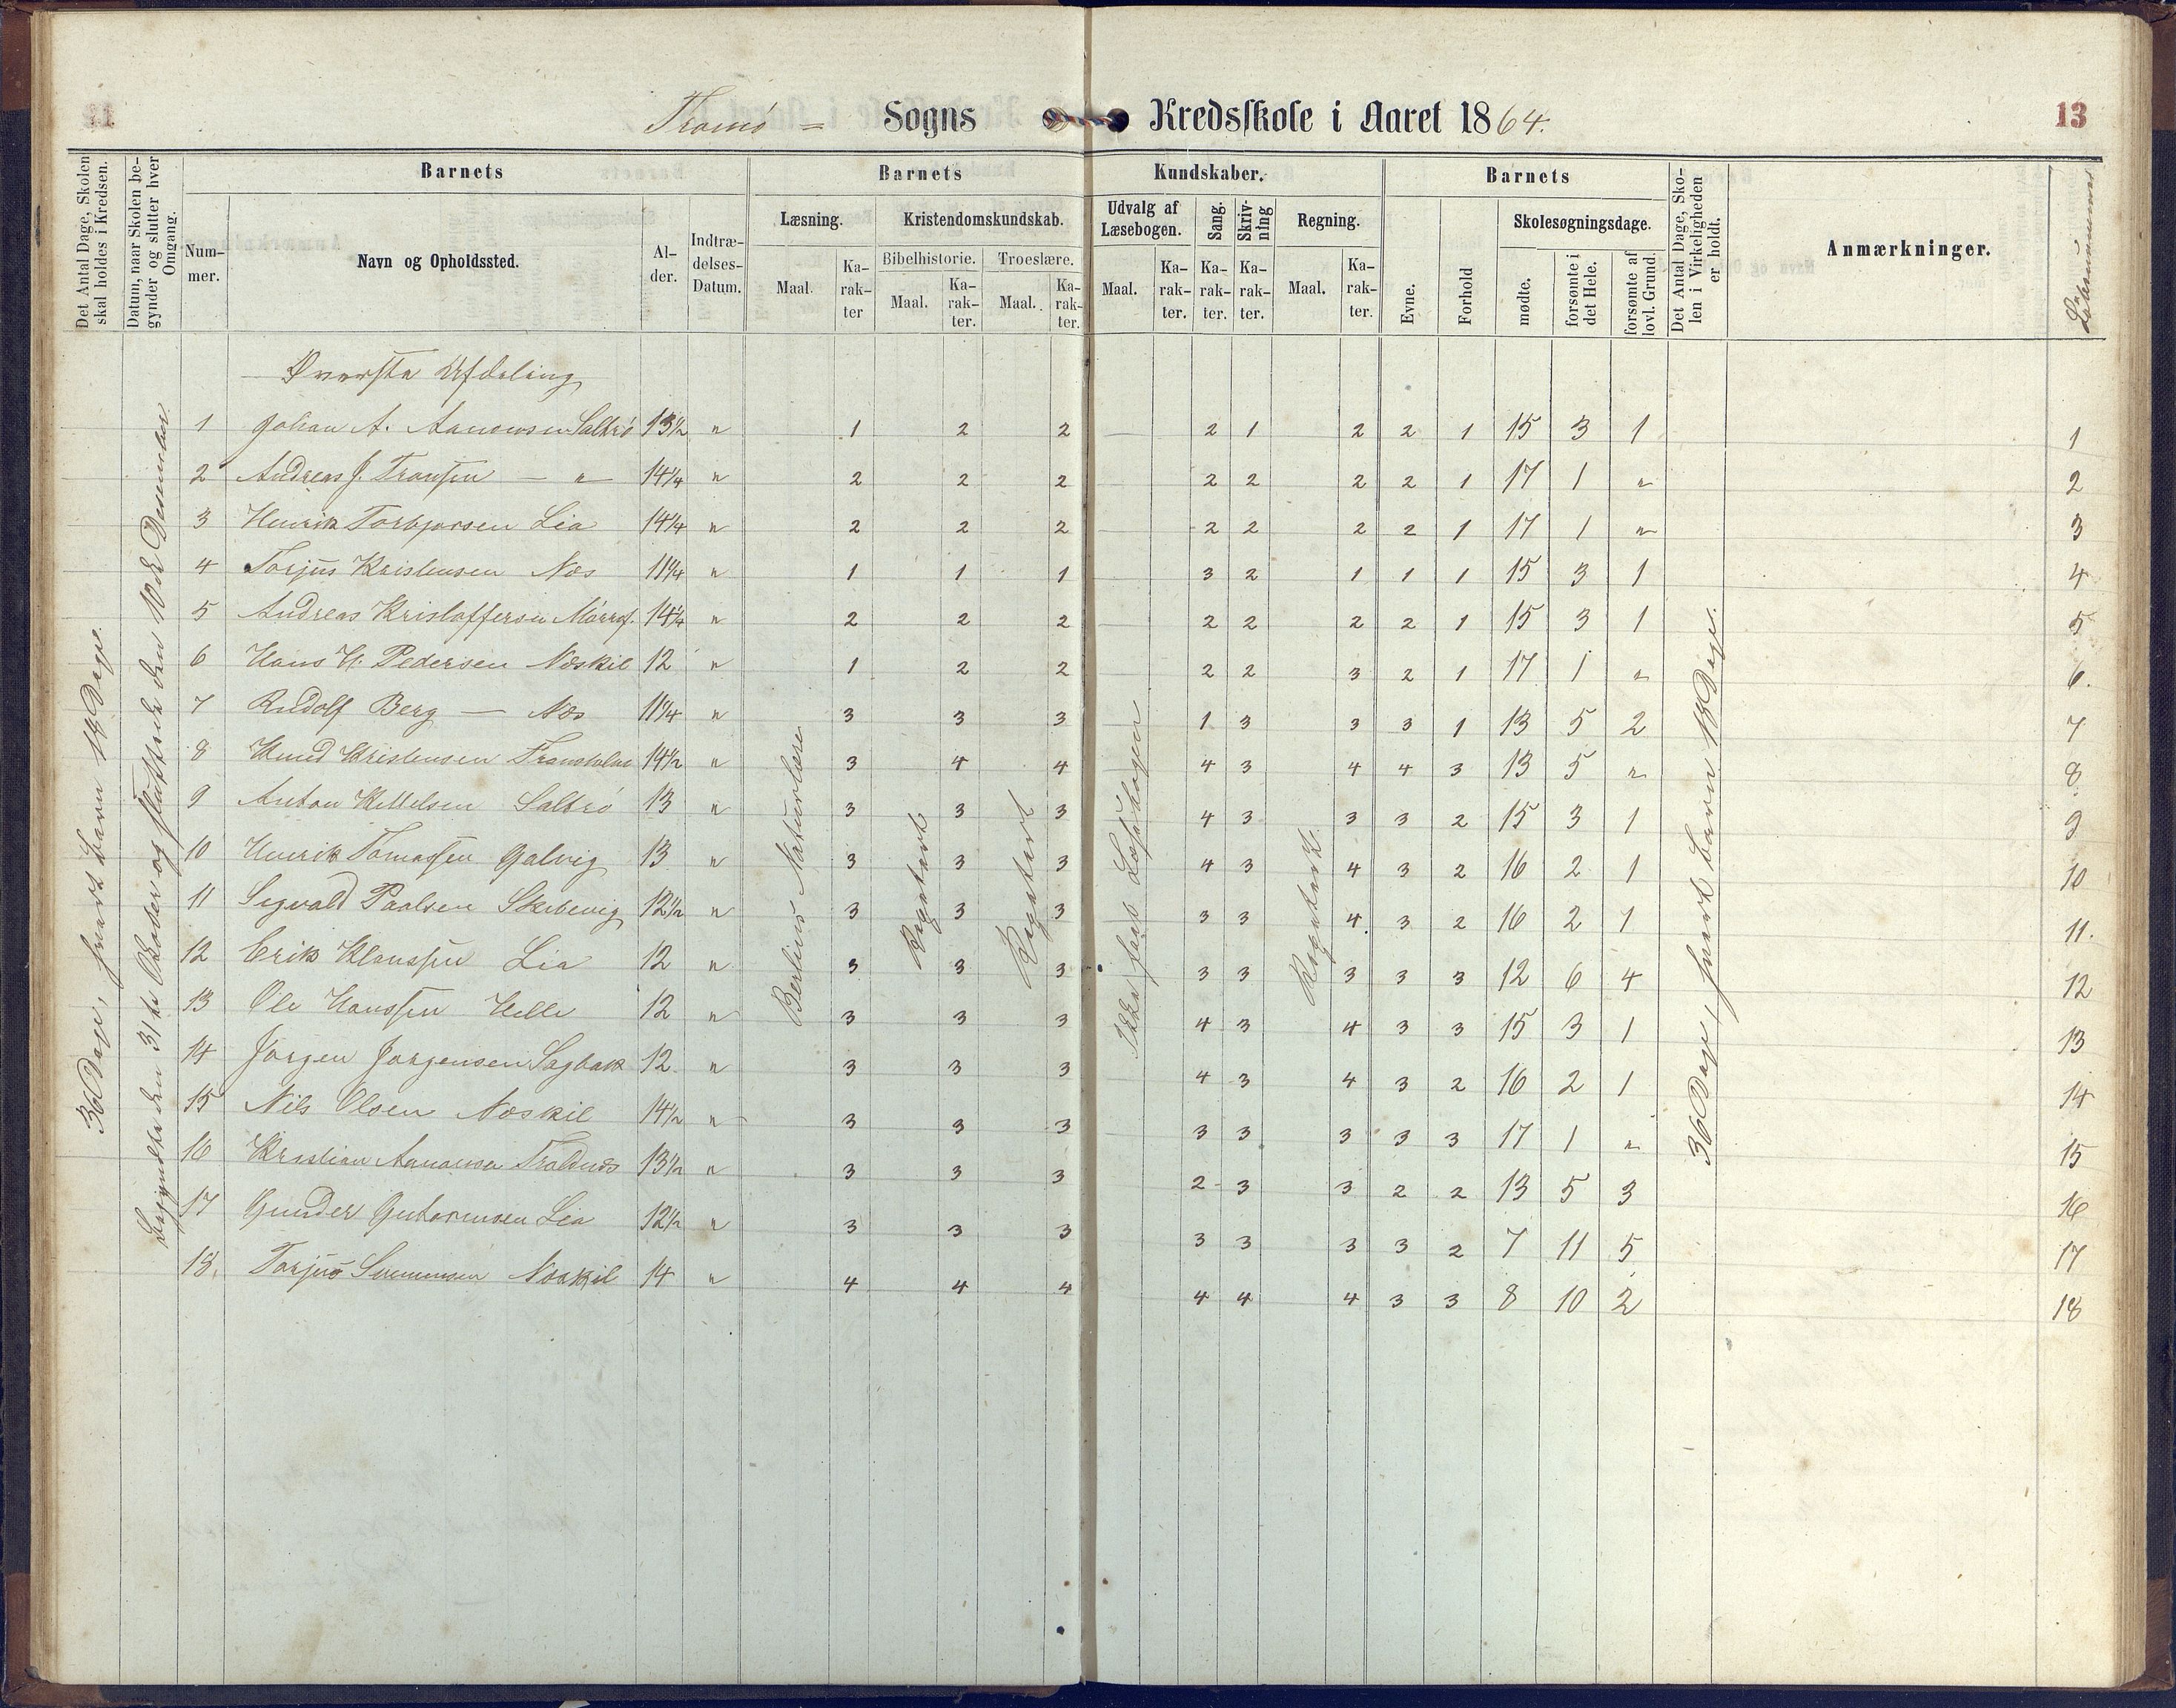 Tromø = Sogns Kredsskole i Aaret 1864.
13
Det Antal Dage, Skolen skal holdes i Kredsen.
Datum, naar Skolen begynder og slutter hver Omgang.
Barnets
Nummer.
Navn og Opholdssted.
Alder.
Indtrædelses-Datum.
Barnets Kundskaber.
Læsning.
Maal.
Karakter
Kristendomskundskab.
Bibelhistorie.
Maal.
Karakter.
Troeslære.
Maal.
Karakter.
Udvalg af Læsebogen.
Maal.
Karakter.
Sang.
Karakter.
Skrivning
Karakter.
Regning.
Maal.
Karakter.
Barnets
Evne.
Forhold
Skolesøgningsdage.
mødte.
forsømte i det Hele.
forsømte af lovl. Grund.
Det Antal Dage, Skolen i Virkeligheden er holdt.
Anmærkninger.
Løbenummer
36 Dage, hvert barn 18 Dage.
Begyndte den 31te October og sluttede den 10de December
Øverste Afdeling
1 Johan A. Aanonsen Saltrø 13½ " 1 2 2 2 1 2 2 1 15 3 1 1
2 Andreas J. Tronsen — " — 14¼ " 2 2 2 2 2 2 2 1 17 1 " 2
3 Henrik Torbjørnsen Lia 14¼ " 2 2 2 2 2 2 2 1 17 1 " 3
4 Torjus Kristensen Næs 11¼ " 1 1 1 3 2 1 1 1 15 3 1 4
5 Andreas Kristoffersen 14¼ " 2 2 2 2 2 2 2 1 15 3 1 5
6 Hans H. Pedersen Næskil 12 " 1 2 2 2 2 3 2 1 17 1 " 6.
7 Rudolf Berg — Næs 11¼ " 3 3 3 1 3 3 3 1 13 5 2 7
8 Knud Kristensen 14½ " 3 4 4 4 3 4 4 3 13 5 " 8
9 Anton Kittelsen Saltrø 13 " 3 3 3 4 3 3 3 2 15 3 1 9
10 Henrik Tomassen Galvig 13 " 3 3 3 4 3 4 3 2 16 2 1 10
11 Sigvald Paalsen Skibevig 12½ " 3 3 3 3 3 4. 3 2 16 2 1 11.
12 Erik Klaussen Lia 12 " 3 3 3 3 3 3 3 3 12 6 4 12
13 Ole Hanssen Helle 12 " 3 3 3 4 3 4 3 3 15 3 1 13
14 Jørgen Jørgensen Sagbak 12 " 3 3 3 4 3 4 3 2 16 2 1 14
15 Nils Olsen Næskil 14½ " 3 3 3 3 3 3 3 3 17 1 " 15
16 Kristian Aanonsen Traldnæs 13½ " 3 3 3 2 3 3 2 2 13 5 3 16
17 Gunder Gutormsen Lia 12½ " 3 3 3 3 3 3 3 2 7 11 5 17
18. Torjus Simmonsen Næskil 14 " 4 4 4 4 4 4 3 3 8 10 2 18
Berlins Naturlære
Repetert
Repetert
Ikke faat Læsebogen
Repetert
36 Dage, hvert barn 18 Dage.